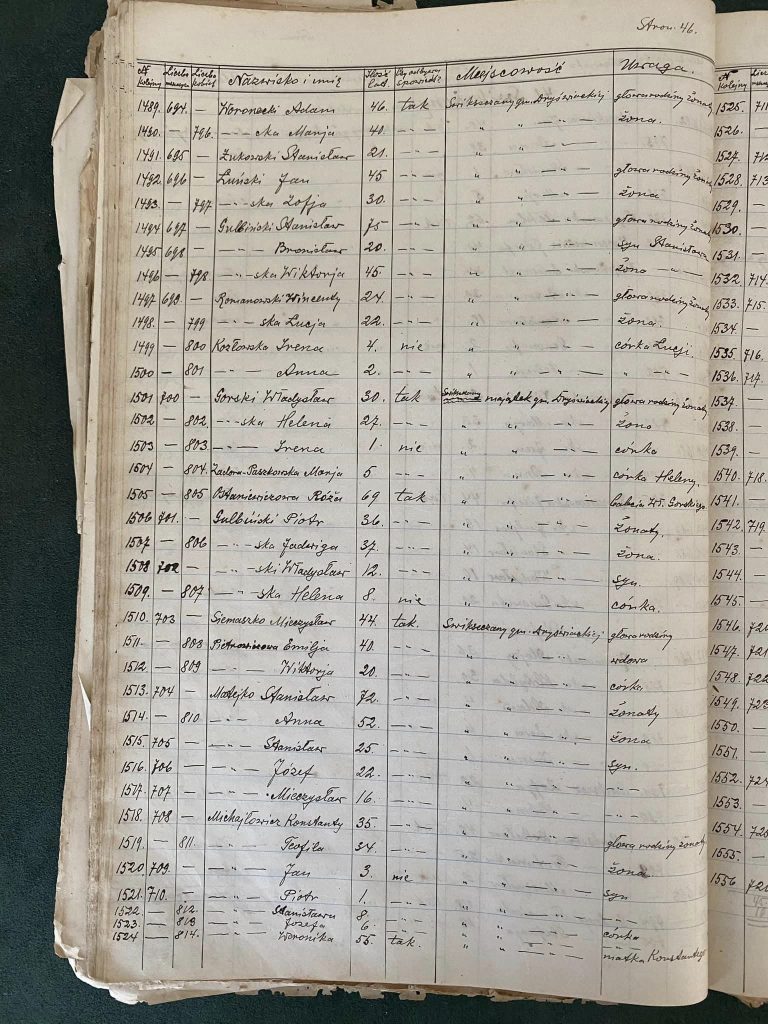 Stron. 46.
№ kolejny Liczba mężcz. Liczba kobiet Nazwisko i imię Ilość lat. Czy odbywa spowiedź Miejscowość Uwaga.
1489. 694. — Woronecki Adam 46. tak głowa rodziny żonaty
1490. — 796. — " — ska Marja 40. — " — " " — " — żona.
1491. 695 — Żukowski Stanisław 21. — " — " " — " —
1492. 696 — Łuński Jan 45 — " — " " — " — głowa rodziny żonaty
1493. — 797 — " — ska Zofja 30. — " — " " — " — żona
1494. 697 — Gulbiński Stanisław 75 — " — " " — " — głowa rodziny żonaty
1495 698 — — " — Bronisław 20. — " — " " — " — syn Stanisława
1496 — 798 — " — ska Wiktorja 45 — " — " " — " — żona — " —
1497. 699. — Romanowski Wincenty 24. — " — " " — " — głowa rodziny żonaty
1498. — 799 — " — ska Lucja 22. — " — " " — " — żona.
1499 — 800 Kozłowska Irena 4. nie " " — " — córka Lucji.
1500 — 801 — " — Anna 2. — " — " " — " — " — " —
1501 700 — Gorski Władysław 30. tak majątek gm. głowa rodziny żonaty
1502 — 802. — " — ska Helena 27. — " — " " — " — żona
1503 — 803. — " — Irena 1. nie " " — " — córka
1504 — 804. Zadora-Paszkowska Marja 5 — " — " " — " — córka Heleny
1505 — 805 Róża 69 tak " " — " — Wł. Gorskiego.
1506 701. — Gulbiński Piotr 36. — " — " " — " — żonaty.
1507 — 806 — " — ska Jadwiga 37. — " — " " — " — żona.
1508 702 — — " — ski Władysław 12. — " — " " — " — syn.
1509. — 807 — " — ska Helena 8. nie " " — " — córka.
1510. 703 — Siemaszko Mieczysław 44. tak. głowa rodziny
1511. — 808 Piotrowiczowa Emilja 40. — " — " " — " — wdowa
1512. — 809 — " — Wiktorja 20. — " — " " — " — córka
1513. 704 — Matejko Stanisław 72. — " — " " — " — żonaty
1514. — 810 — " — Anna 52. — " — " " — " — żona
1515. 705 — — " — Stanisław 25. — " — " " — " — syn.
1516. 706 — — " — Józef 22. — " — " " — " — — " —
1517. 707 — — " — Mieczysław 16. — " — " " — " —
1518. 708 — Michajłowicz Konstanty 35. — " — " " — " —
1519. — 811. — " — Teofila 34. — " — " " — " — głowa rodziny żonaty
1520. 709. — — " — Jan 3. nie " " — " — żona
1521. 710. — — " — Piotr 1. — " — " " — " — syn
1522. — 812. — " — Stanisława 8. — " — " " — " — — " —
1523. — 813 — " — Józefa 6. — " — " " — " — córka
1524 — 814. — " — Weronika 55. tak. " " — " — matka Konstantego
№ kolejny
1525.
1526.
1527.
1528.
1529.
1530.
1531.
1532. 714.
1533. 715.
1534. —
1535. 716.
1536. 717.
1537. —
1538.
1539. —
1540. 718.
1541. —
1542. 719.
1543. —
1544. —
1545. —
1546.
1547.
1548. 722
1549. 723
1550. —
1551. —
1552.
1553. —
1554.
1555. —
1556.